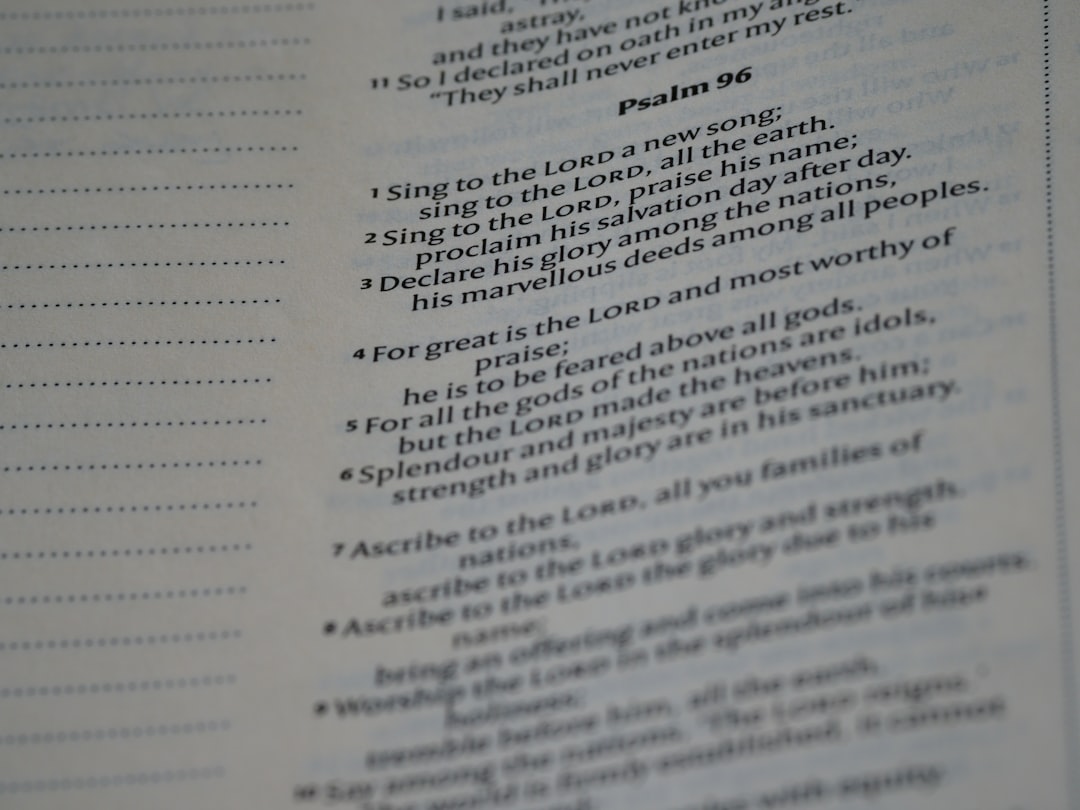 I said,
astray,
and they have not
11 So I declared on oath in my
“They shall never enter my rest.”
Psalm 96
1 Sing to the LORD a new song;
sing to the LORD, all the earth.
2 Sing to the LORD, praise his name;
proclaim his salvation day after day.
3 Declare his glory among the nations,
his marvellous deeds among all peoples.
4 For great is the LORD and most worthy of
praise;
he is to be feared above all gods.
5 For all the gods of the nations are idols,
but the LORD made the heavens.
6 Splendour and majesty are before him;
strength and glory are in his sanctuary.
7 Ascribe to the LORD, all you families of
nations,
ascribe to the LORD glory and strength.
8 Ascribe to the LORD the glory due to his
name;
bring an offering and come into his courts.
9 Worship the LORD in the splendour of his
holiness;
tremble before him, all the earth.
10 Say among the nations, ‘The LORD reigns.’
The world is firmly established, it cannot
with equity